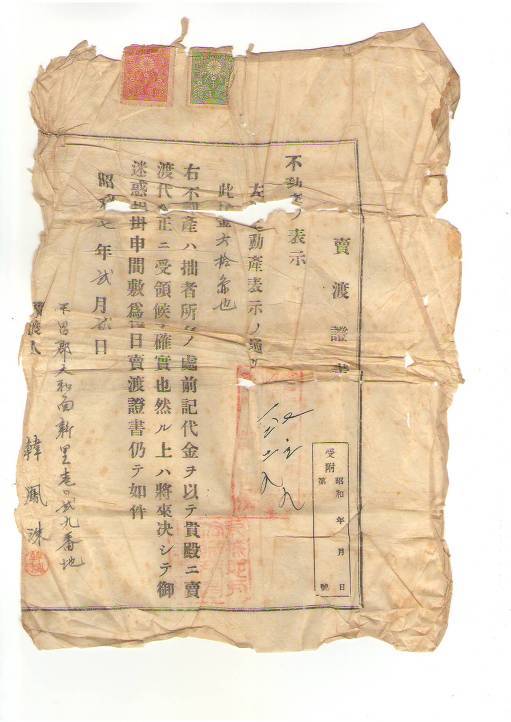 賣渡證書
受附
昭和 年 月 日
第 號
不動產ノ表示
不動產表示ノ通リ
此代金六拾
右不動產ハ拙者所有ノ處前記代金ヲ以テ貴殿ニ賣
渡代金正ニ受領候確實也然ル上ハ將來决シテ御
迷惑相掛申間敷爲後日賣渡證書仍テ如件
昭和七年貳月 日
郡 和面新里壹四貳九番地
賣渡人
韓鳳洙